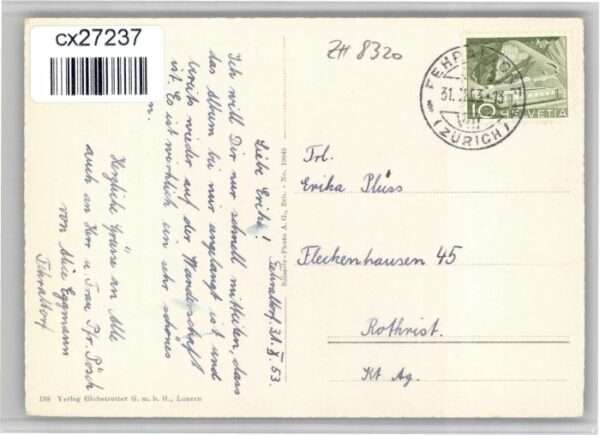 cx27237
ZH 8320
FEHRALTORF
31.X.53-13
(ZÜRICH)
10
HELVETIA
Frl.
Erika Plüss
Fleckenhausen 45
Rothrist.
Kt Ag.
Fehraltorf, 31. X. 53
Liebe Erika!
Ich will Dir nur schnell mitteilen, dass
das Album bei mir angelangt ist und
wieder auf der Wanderschaft
ist. Es ist wirklich ein sehr schönes
Herzliche Grüsse an Alle
auch an Herr u Frau Pfr.
von Alice Eggmann
Fehraltorf
Photo A. G.
No. 19045
198 Verlag Globetrotter G. m. b. H., Luzern